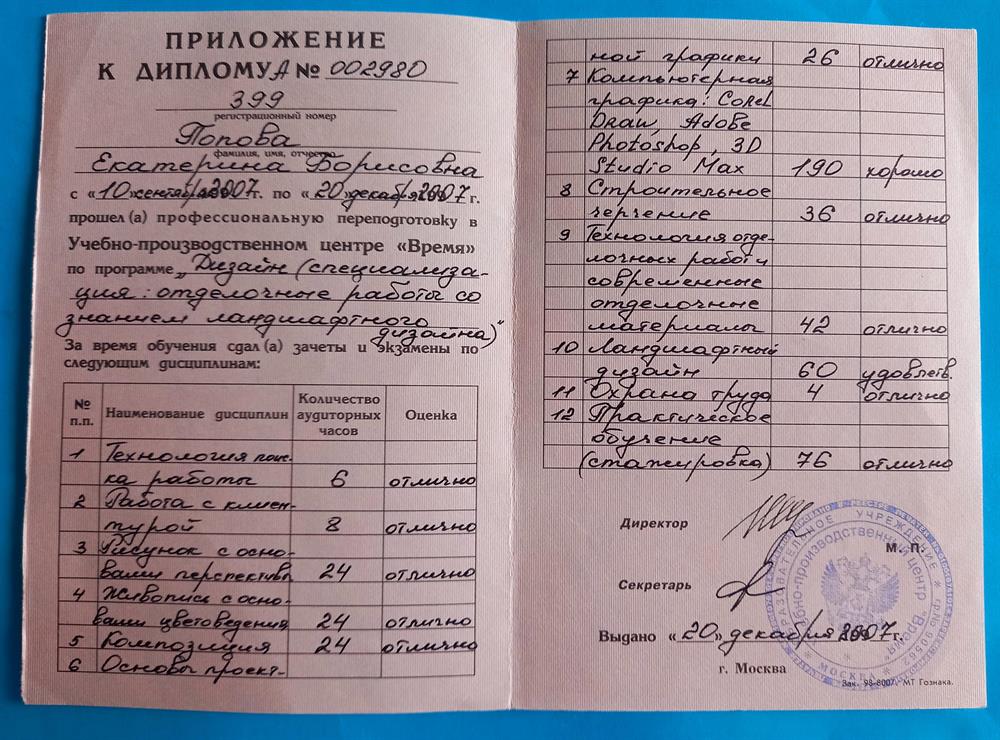 ПРИЛОЖЕНИЕ
К ДИПЛОМУ А № 002980
399
регистрационный номер
Попова
фамилия, имя, отчество
Екатерина Борисовна
с «10» сентября 2007 г. по «20» декабря 2007 г.
прошел (а) профессиональную переподготовку в
Учебно-производственном центре «Время»
по программе „Дизайн (специализа-
ция: отделочные работы со
знанием ландшафтного
дизайна)“
За время обучения сдал (а) зачеты и экзамены по
следующим дисциплинам:
№ п.п. Наименование дисциплин Количество аудиторных часов Оценка
1 Технология поис-
ка работы 6 отлично
2 Работа с клиен-
турой 8 отлично
3 Рисунок с осно-
вами перспективы 24 отлично
4 Живопись с осно-
вами цветоведения 24 отлично
5 Композиция 24 отлично
6 Основы проект-
ной графики 26 отлично
7 Компьютерная
графика: Corel
Draw, Adobe
Photoshop, 3D
Studio Max 190 хорошо
8 Строительное
черчение 36 отлично
9 Технология отде-
лочных работ и
современные
отделочные
материалы 42 отлично
10 Ландшафтный
дизайн 60 удовлетв.
11 Охрана труда 4 отлично
12 Практическое
обучение
(стажировка) 76 отлично
Директор
М. П.
Секретарь
Выдано «20» декабря 2007 г.
г. Москва
Зак. 98-8007, МТ Гознака.
УЧРЕЖДЕНИЕ
МОСКВА